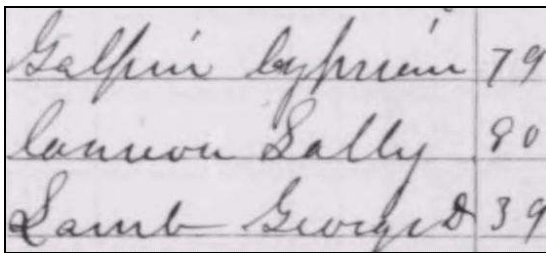 Galpin Cyprian 79
Cannon Sally 80
Lamb George D 39